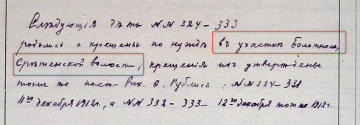 Следующія дѣти №№ 324–333
родились и крещены по нужде въ участкѣ Болотномъ,
Срѣтенской волости, крещенія ихъ утверждены
Вик. О. Рублисъ: №№ 324–331
11го декабря 1912г., а №№ 332–333– 12го декабря того же 1912г.